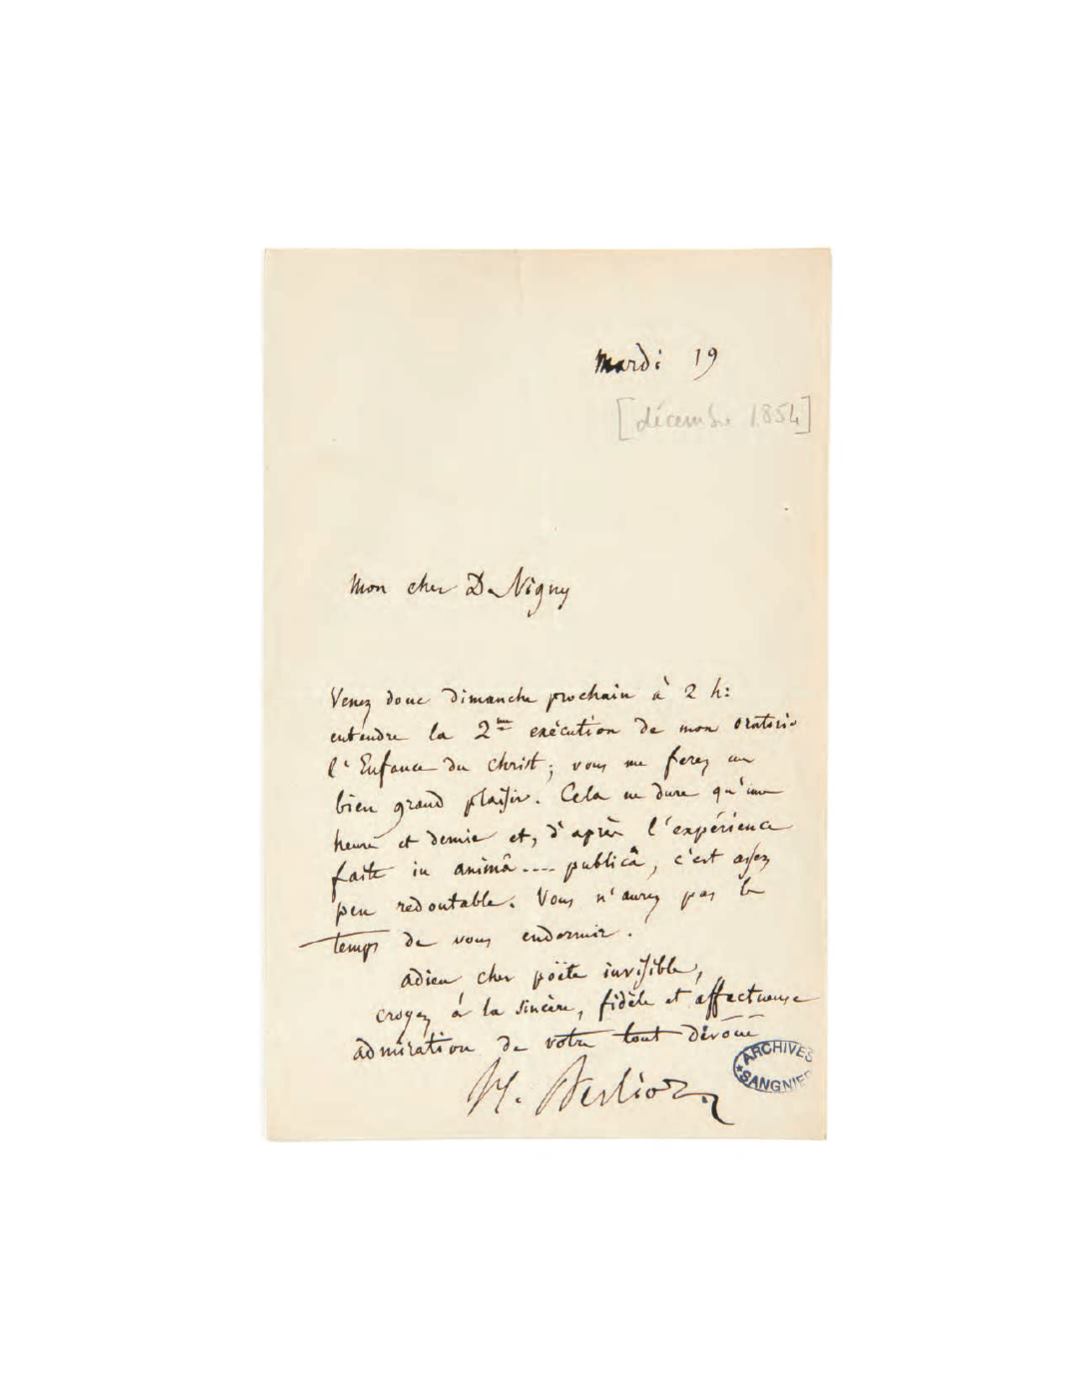 mardi 19
[décembre 1854]
Mon cher De Vigny
Venez donc dimanche prochain à 2 h:
entendre la 2me exécution de mon oratorio
l'Enfance du Christ; vous me ferez un
bien grand plaisir. Cela ne dure qu'une
heure et demie et, d'après l'expérience
faite in animâ .... publicâ, c'est assez
peu redoutable. Vous n'aurez pas le
temps de vous endormir.
adieu cher poëte invisible,
croyez à la sincère, fidèle et affectueuse
admiration de votre tout dévoué
H. Berlioz
ARCHIVES
SANGNIER